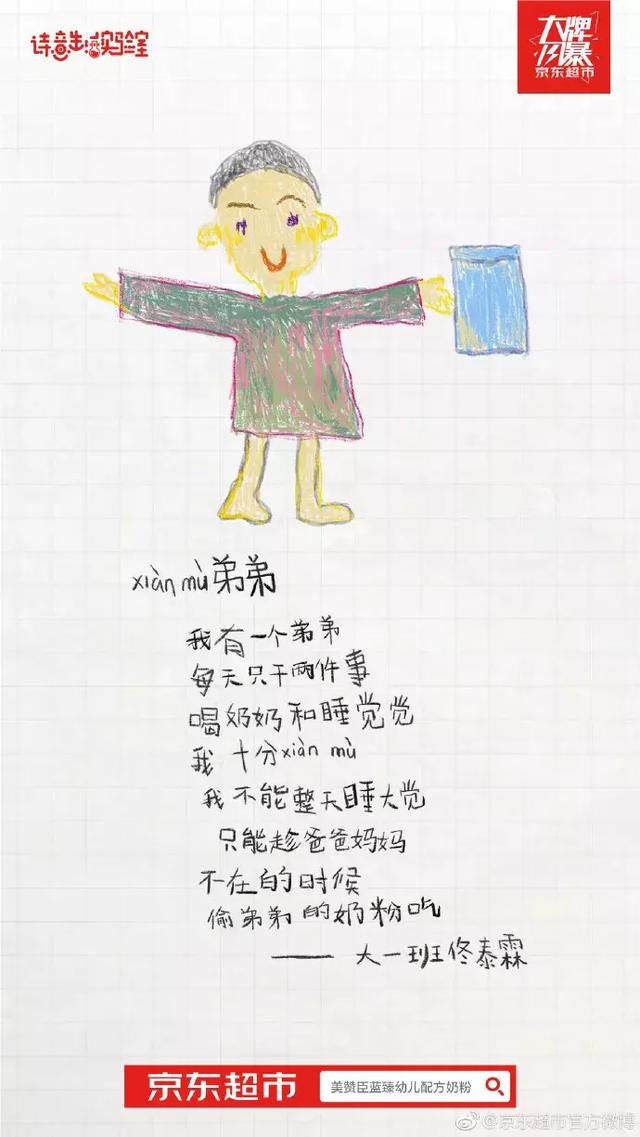 诗意生活实验室
大牌
风暴
京东超市
xiàn mù弟弟
我有一个弟弟
每天只干两件事
喝奶奶和睡觉觉
我十分xiàn mù
我不能整天睡大觉
只能趁爸爸妈妈
不在的时候
偷弟弟的奶粉吃
——大一班佟泰霖
京东超市 美赞臣蓝臻幼儿配方奶粉
@京东超市官方微博